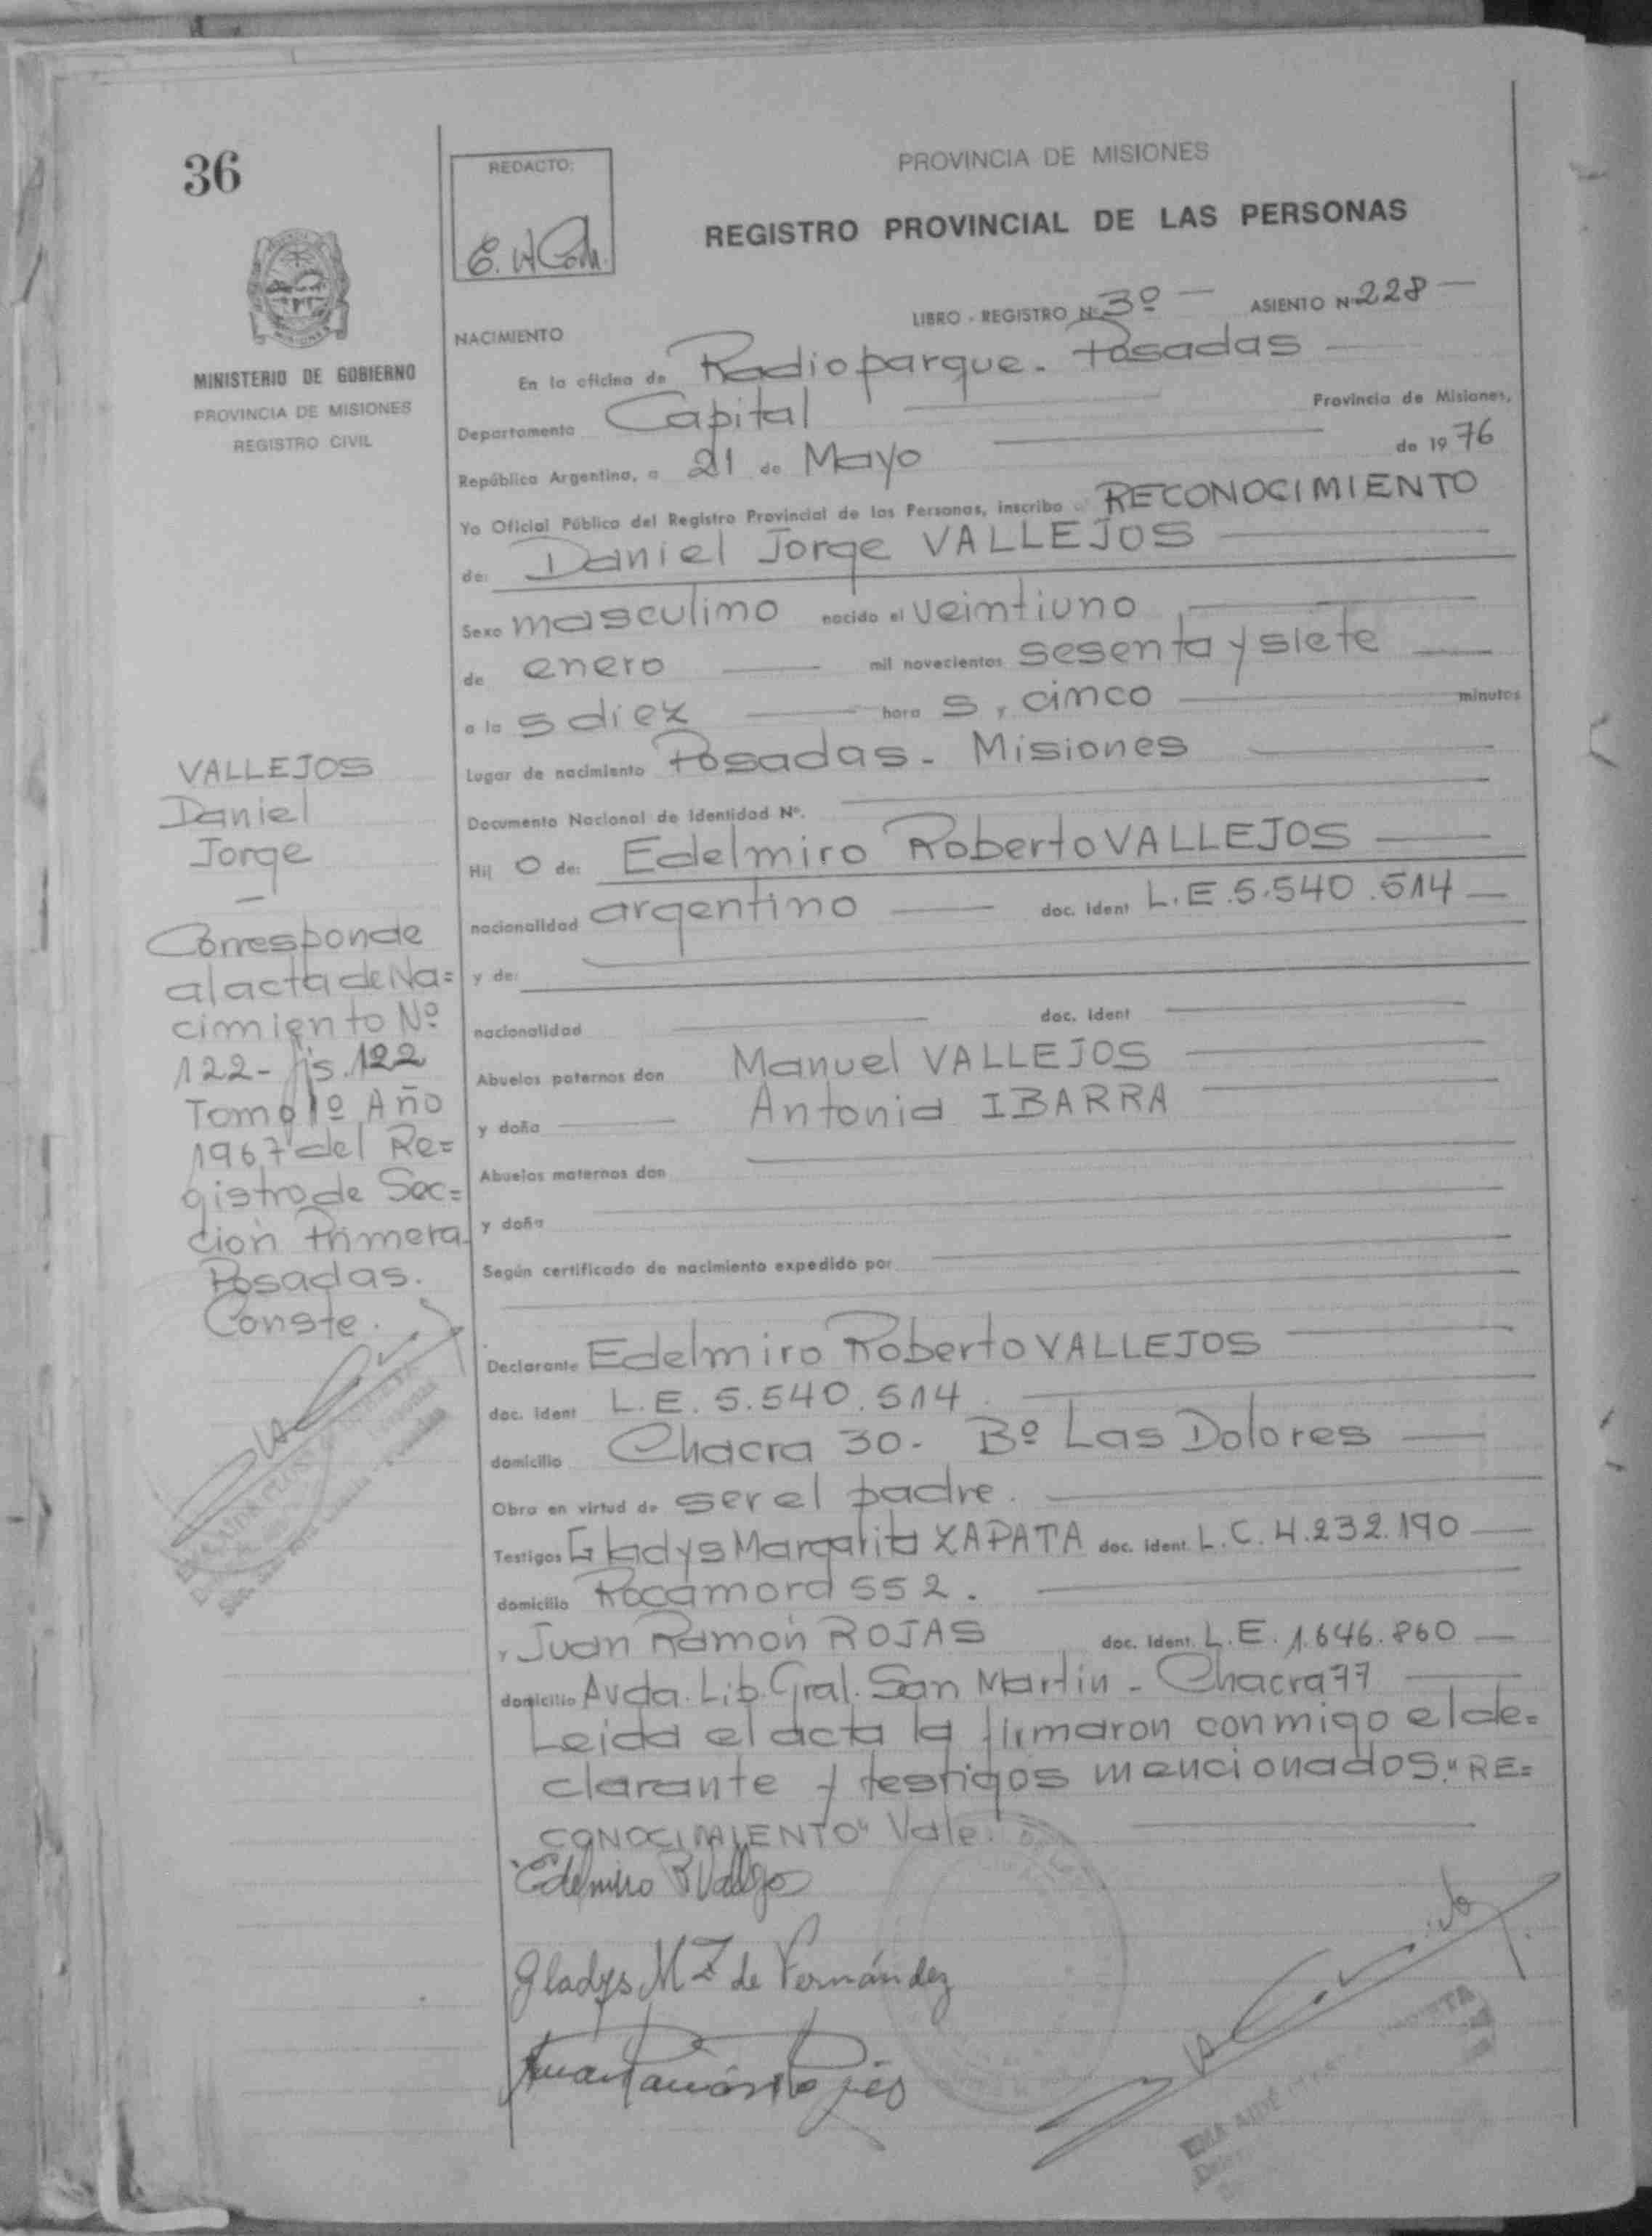 36
REDACTO:
PROVINCIA DE MISIONES
REGISTRO PROVINCIAL DE LAS PERSONAS
MINISTERIO DE GOBIERNO
PROVINCIA DE MISIONES
REGISTRO CIVIL
LIBRO - REGISTRO Nº 3º — ASIENTO Nº 228 —
NACIMIENTO
En la oficina de Radioparque - Posadas
Departamento Capital Provincia de Misiones,
República Argentina, a 21 de Mayo de 1976
Yo Oficial Público del Registro Provincial de las Personas, inscribo RECONOCIMIENTO
de: Daniel Jorge VALLEJOS
Sexo masculino nacido el veintiuno
de enero mil novecientos sesenta y siete
a las diez horas, cinco minutos
Lugar de nacimiento Posadas - Misiones
Documento Nacional de Identidad Nº.
Hijo de: Edelmiro Roberto VALLEJOS
nacionalidad argentino doc. Ident L.E. 5.540.514
y de:
nacionalidad doc. Ident
Abuelos paternos don Manuel VALLEJOS
y doña Antonia IBARRA
Abuelos maternos don
y doña
Según certificado de nacimiento expedido por
Declarante Edelmiro Roberto VALLEJOS
doc. Ident L.E. 5.540.514
domicilio Chacra 30 - Bº Las Dolores
Obra en virtud de ser el padre.
Testigos Gladys Margarita ZAPATA doc. Ident. L.C. 4.232.190
domicilio Rocamora 552.
y Juan Ramón ROJAS doc. Ident. L.E. 1.646.860
domicilio Avda. Lib. Gral. San Martin - Chacra 77
Leida el acta la firmaron conmigo el de=
clarante y testigos mencionados. "RE=
CONOCIMIENTO" Vale.
Edelmiro R Vallejo
Gladys M Z de Fernández
Juan Ramón Rojas
VALLEJOS
Daniel
Jorge
—
Corresponde
al acta de Na=
cimiento Nº
122- fs. 122
Tomo 1º Año
1967 del Re=
gistro de Sec=
ción Primera
Posadas.
Conste.